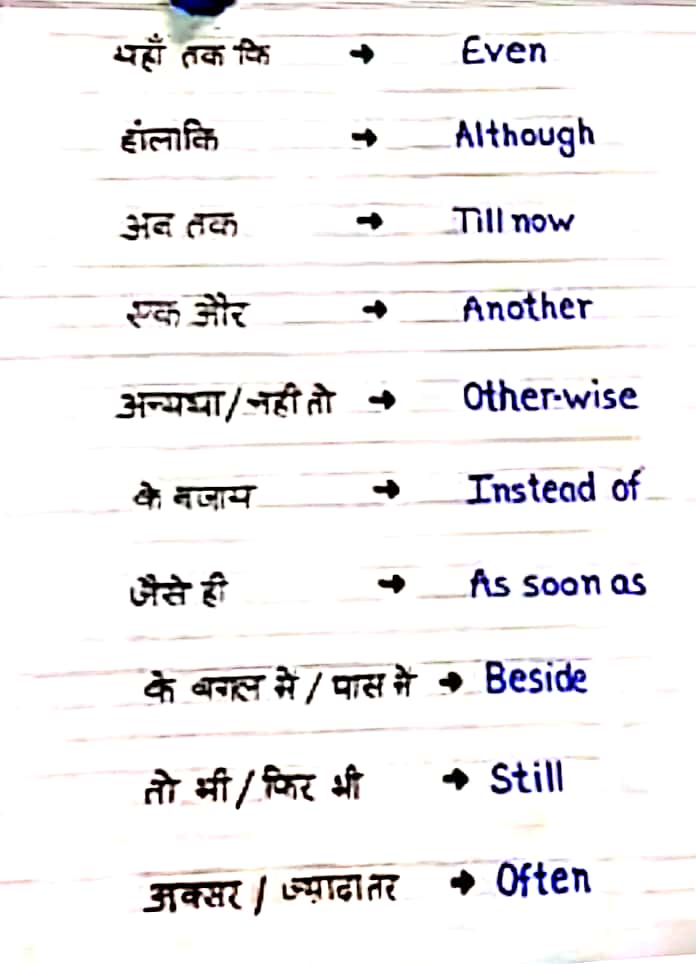 यहाँ तक कि → Even
हांलाकि → Although
अब तक → Till now
एक और → Another
अन्यथा/नही तो → Other-wise
के बजाय → Instead of
जैसे ही → As soon as
के बगल मे / पास मे → Beside
तो भी / फिर भी → Still
अक्सर / ज्यादातर → Often